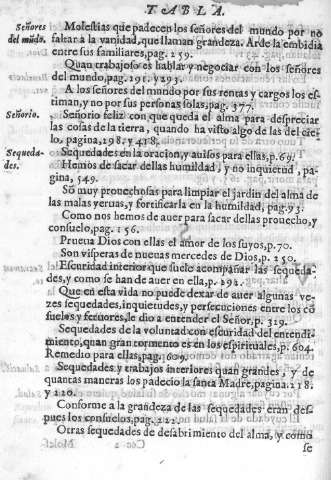 TABLA.
Señores del mũdo.
Molestias que padecen los señores del mundo por no
faltar a la vanidad, que llaman grandeza. Arde la embidia
entre sus familiares, pag. 259.
Quan trabajoso es hablar y negociar con los señores
del mundo, pag. 291. y 293.
A los señores del mundo por sus rentas y cargos los es-
timan, y no por sus personas solas, pag. 377.
Señorio.
Señorio feliz con que queda el alma para despreciar
las cosas de la tierra, quando ha visto algo de las del cie-
lo, pagina, 298. y 418.
Sequeda-
des.
Sequedades en la oracion, y auisos para ellas, p. 69.
Hemos de sacar dellas humildad, y no inquietud, pa-
gina, 549.
Sõ muy prouechosas para limpiar el jardin del alma de
las malas yeruas, y fortificarla en la humildad, pag. 93.
Como nos hemos de auer para sacar dellas prouecho, y
consuelo, pag. 156.
Prueua Dios con ellas el amor de los suyos, p. 70.
Son visperas de nueuas mercedes de Dios, p. 250.
Escuridad interior que suele acompañar las sequeda-
des, y como se han de auer en ella, p. 292.
Que en esta vida no puede dexar de auer algunas ve-
zes sequedades, inquietudes, y persecuciones entre los cõ
suelos y feruores, le dio a entender el Señor, p. 329.
Sequedades de la voluntad con escuridad del entendi-
miento, quan gran tormento es en los espirituales, p. 604.
Remedio para ellas, pag. 609.
Sequedades y trabajos interiores quan grandes, y de
quantas maneras los padecio la santa Madre, pagina, 218.
y 220.
Conforme a la grandeza de las sequedades eran des-
pues los consuelos, pag. 222.
Otras sequedades de desabrimiento del alma, y como
se